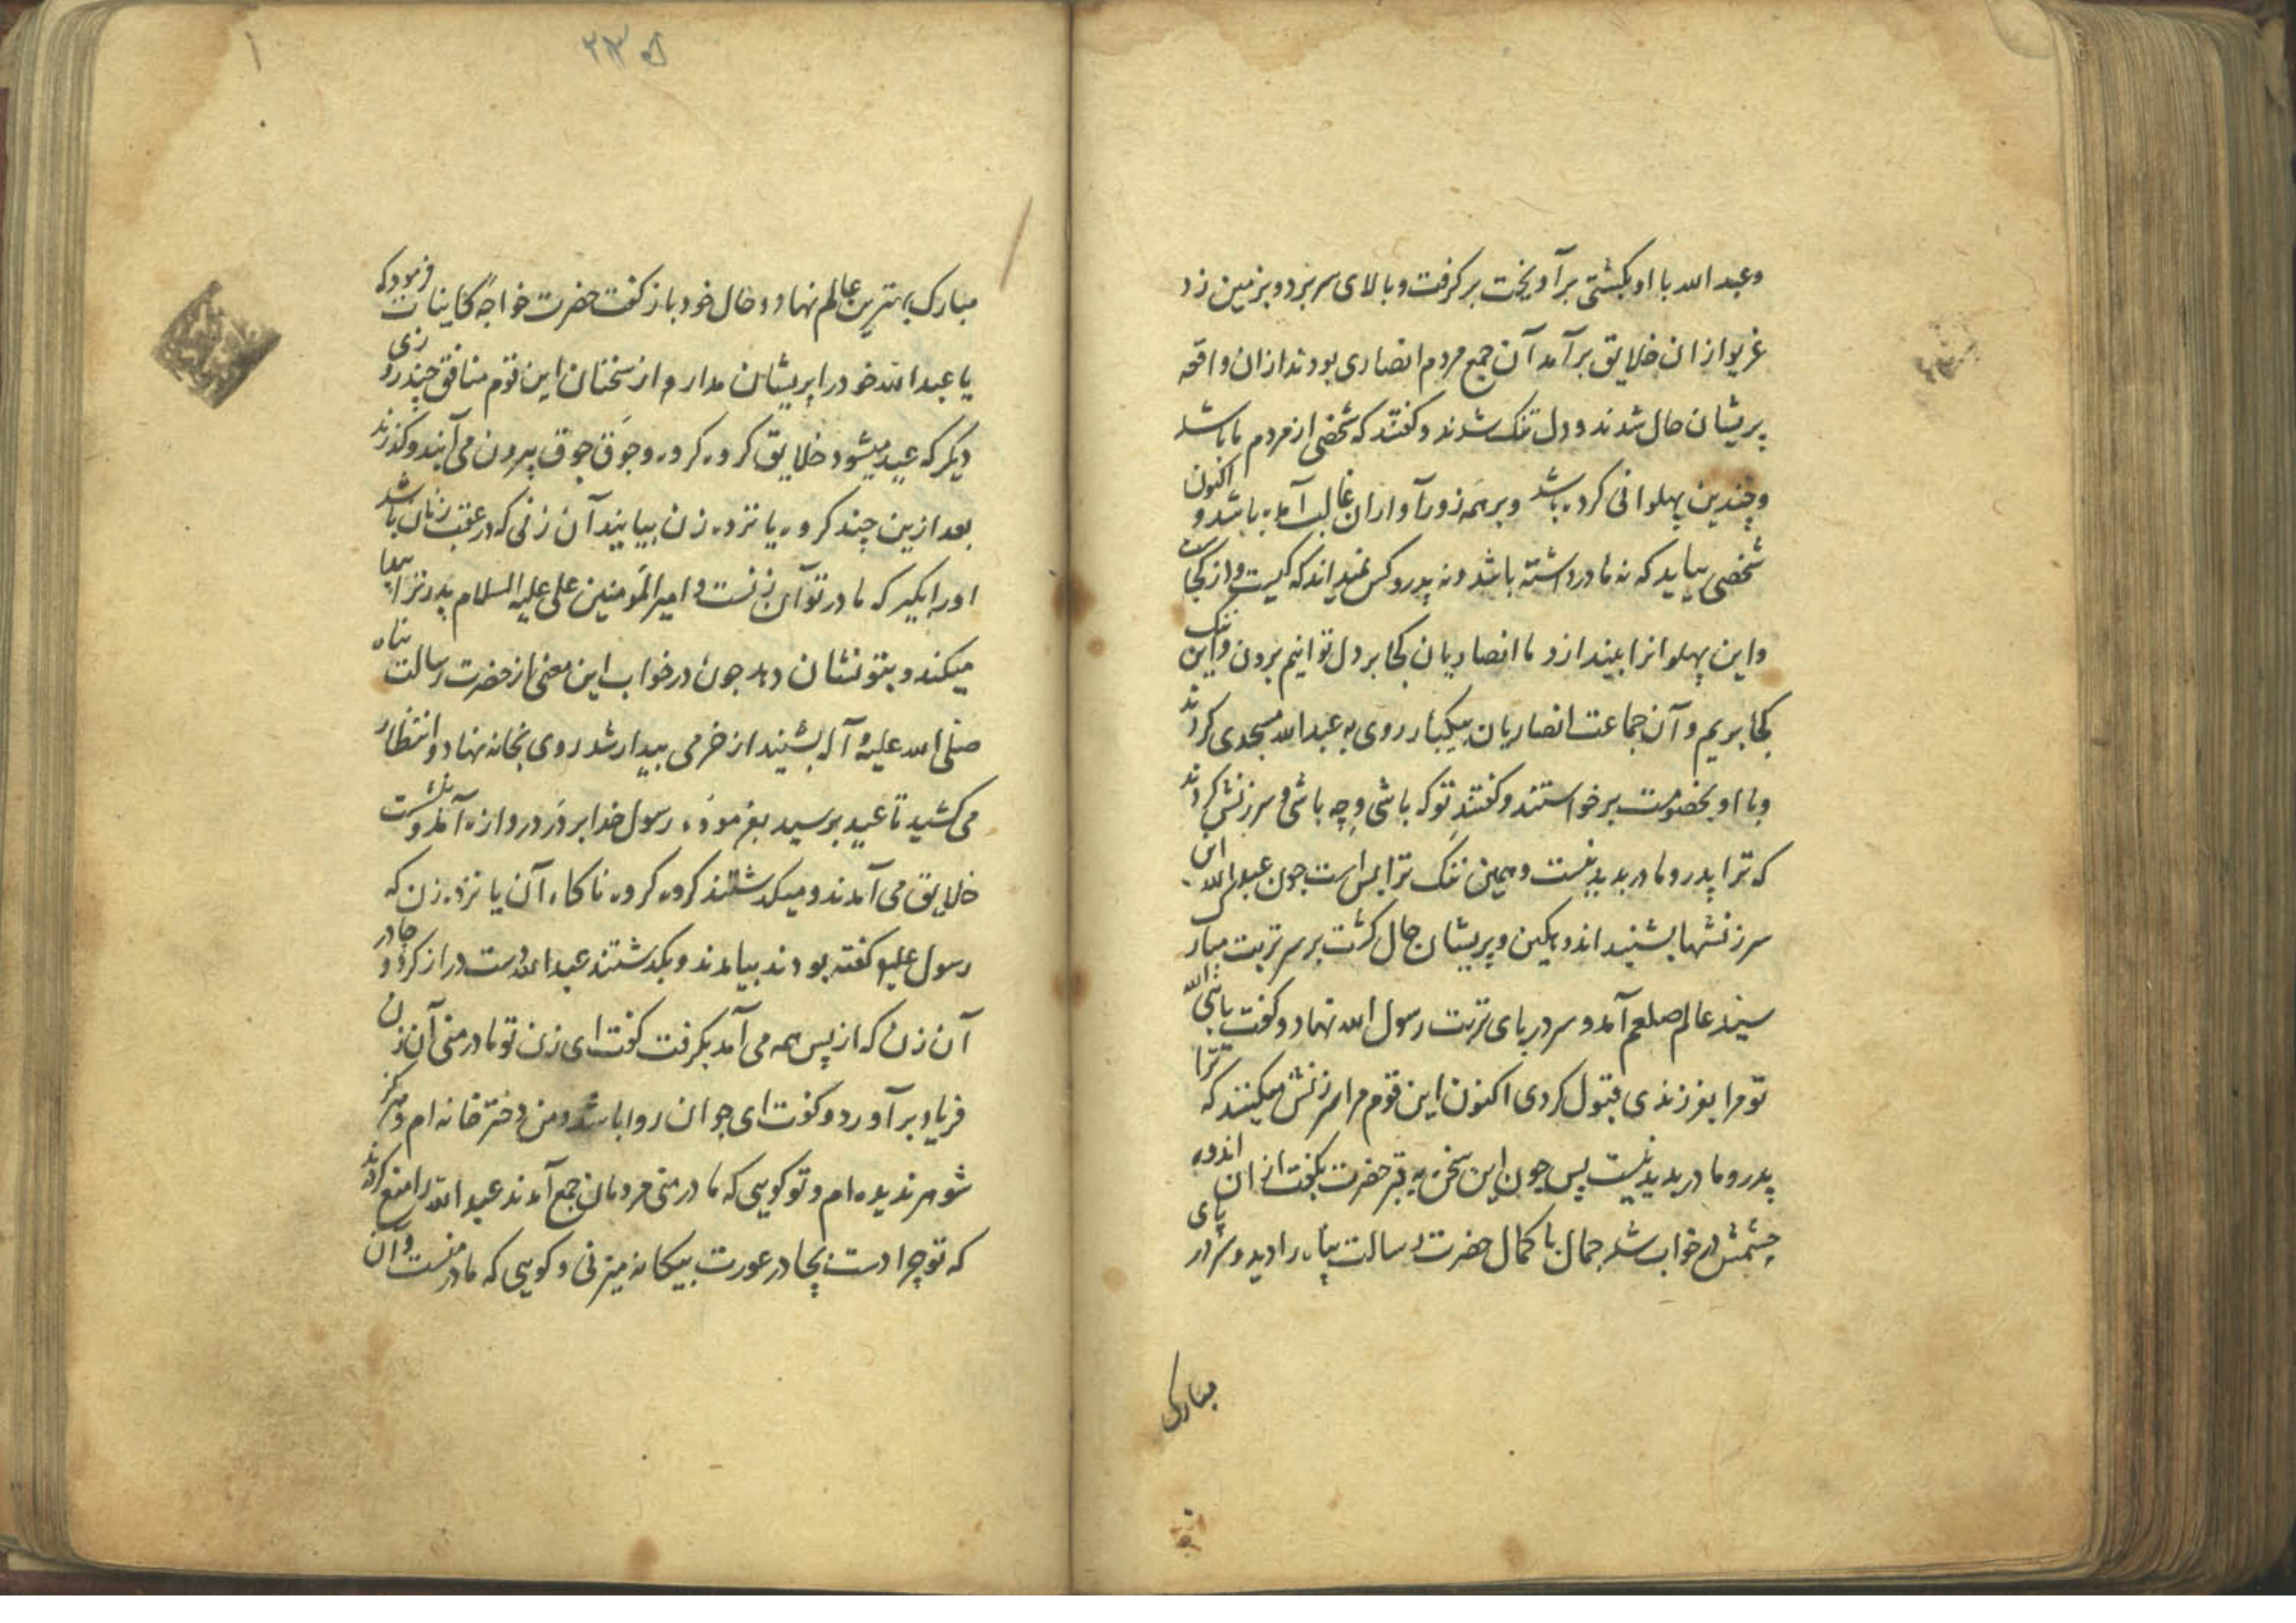 وعبد الله با او بکشتی برآویخت برکرفت و بالای سر برد و بر زمین زد
غریو ازان خلایق برآمد آن جمع مردم انصاری بودند ازان واقعه
پریشان حال شدند و دل تنک شدند و کفتند که شخصی از مردم ما باشد
و چندین پهلوانی کرده باشد و بر همه زورآوران غالب آمده باشد و اکنون
شخصی بیاید که نه مادر داشته باشد و نه پدر و کس نمیداند که کیست و از کجاست
و این پهلوانرا بیندازد ما انصاریان کجا بر دل توانیم بردن و این ننک
کجا بریم و آن جماعت انصاریان بیکبار روی به عبد الله مسجدی کردند
و با او بخصومت برخواستند و کفتند تو که باشی و چه باشی و سرزنش کردند
که ترا پدر و مادر بدید نیست و همین ننک ترا بس است جون عبد الله این
سرزنشها بشنید اندوهکین و پریشان حال کشت بر سر تربت مبارک
سید عالم صلعم آمد و سر در پای تربت رسول الله نهاد و کفت یا نبی الله
تو مرا بفرزندی قبول کردی اکنون این قوم مرا سرزنش میکنند که ترا
پدر و مادر بدید نیست پس جون این سخن به قبر حضرت بکفت از ان اندوه
چشمش در خواب شد جمال با کمال حضرت رسالت پناه را دید و سر در پای
مبارک
۲۳۵
مبارک بهترین عالم نهاد و حال خود باز کفت حضرت خواجهٔ کاینات فرمود که
یا عبد الله خود را پریشان مدار و از سخنان این قوم منافق چند روزی
دیکر که عید میشود خلایق کروه کروه و جوق جوق بیرون می آیند و کذرند
بعد ازین چند کروه یانزده زن بیایند آن زنی که در عقب زنان باشد
او را بکیر که مادر تو آن زنست و امیر المومنین علی علیه السلام پدر ترا پیدا
میکند و بتو نشان دهد جون در خواب این معنی از حضرت رسالت پناه
صلی الله علیه و آله بشنید از خرمی بیدار شد روی بخانه نهاد و انتظار
می کشید تا عید برسید بفرموده رسول خدا بر در دروازه آمد و نشست
خلایق می آمدند و میکذشتند کروه کروه ناکاه آن یانزده زن که
رسول علیه کفته بودند بیامدند و بکذشتند عبد الله دست دراز کرد و چادر
آن زن که از پس همه می آمد بکرفت کفت ای زن تو مادر منی آن زن
فریاد برآورد و کفت ای جوان روا باشد و من دختر خانه ام و هرکز
شوهر ندیده ام و تو کویی که مادر منی مردمان جمع آمدند عبد الله را منع کردند
که تو چرا دست بچادر عورت بیکانه میزنی و کویی که مادر منست و آن